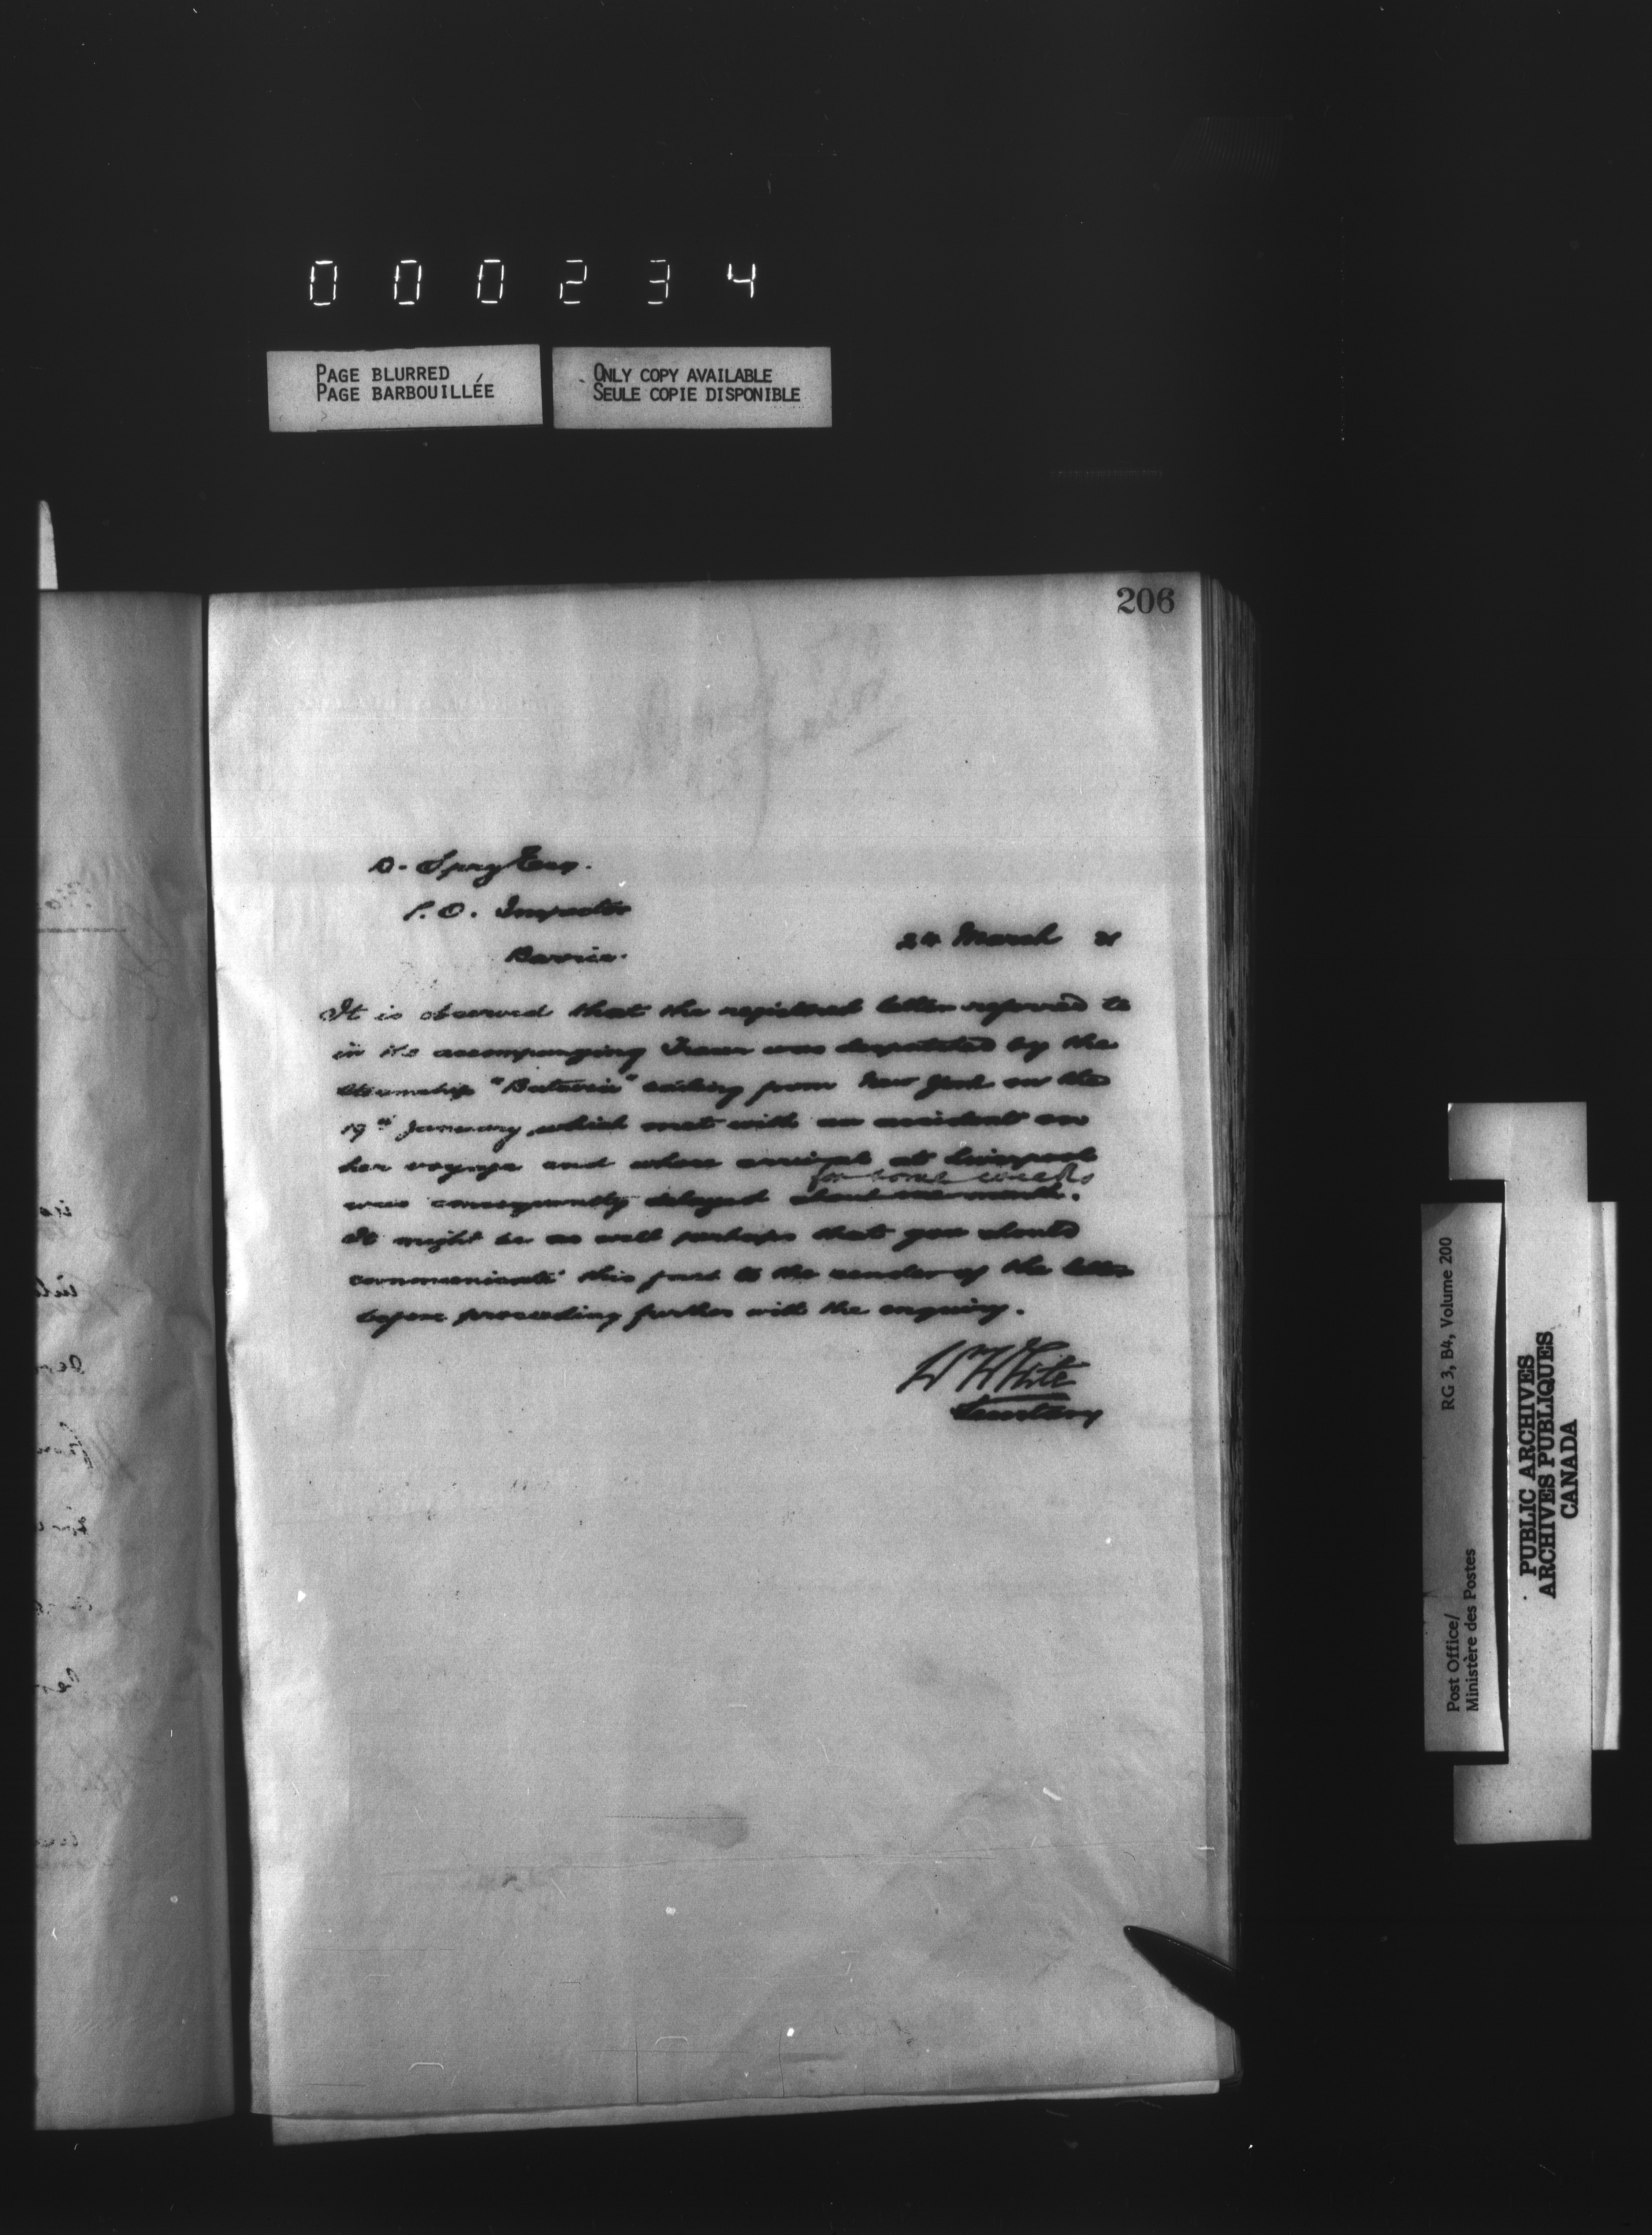 000234
PAGE BLURRED
PAGE BARBOUILLÉE
ONLY COPY AVAILABLE
SEULE COPIE DISPONIBLE
206
D. Spry Esq.
P. O. Inspector
Barrie.
24 March
It is observed that the registered letter referred to
in the accompanying Tracer was despatched by the
steamship "Batavia" sailing from New York on the
19th January, which met with an accident on
her voyage and whose arrival at Liverpool
for some weeks
was consequently delayed about one month.
It might be as well perhaps that you should
communicate this fact to the sender of the letter
before proceeding further with the enquiry.
Wm White
Secretary
RG 3, B4, Volume 200
Post Office/
Ministère des Postes
PUBLIC ARCHIVES
ARCHIVES PUBLIQUES
CANADA